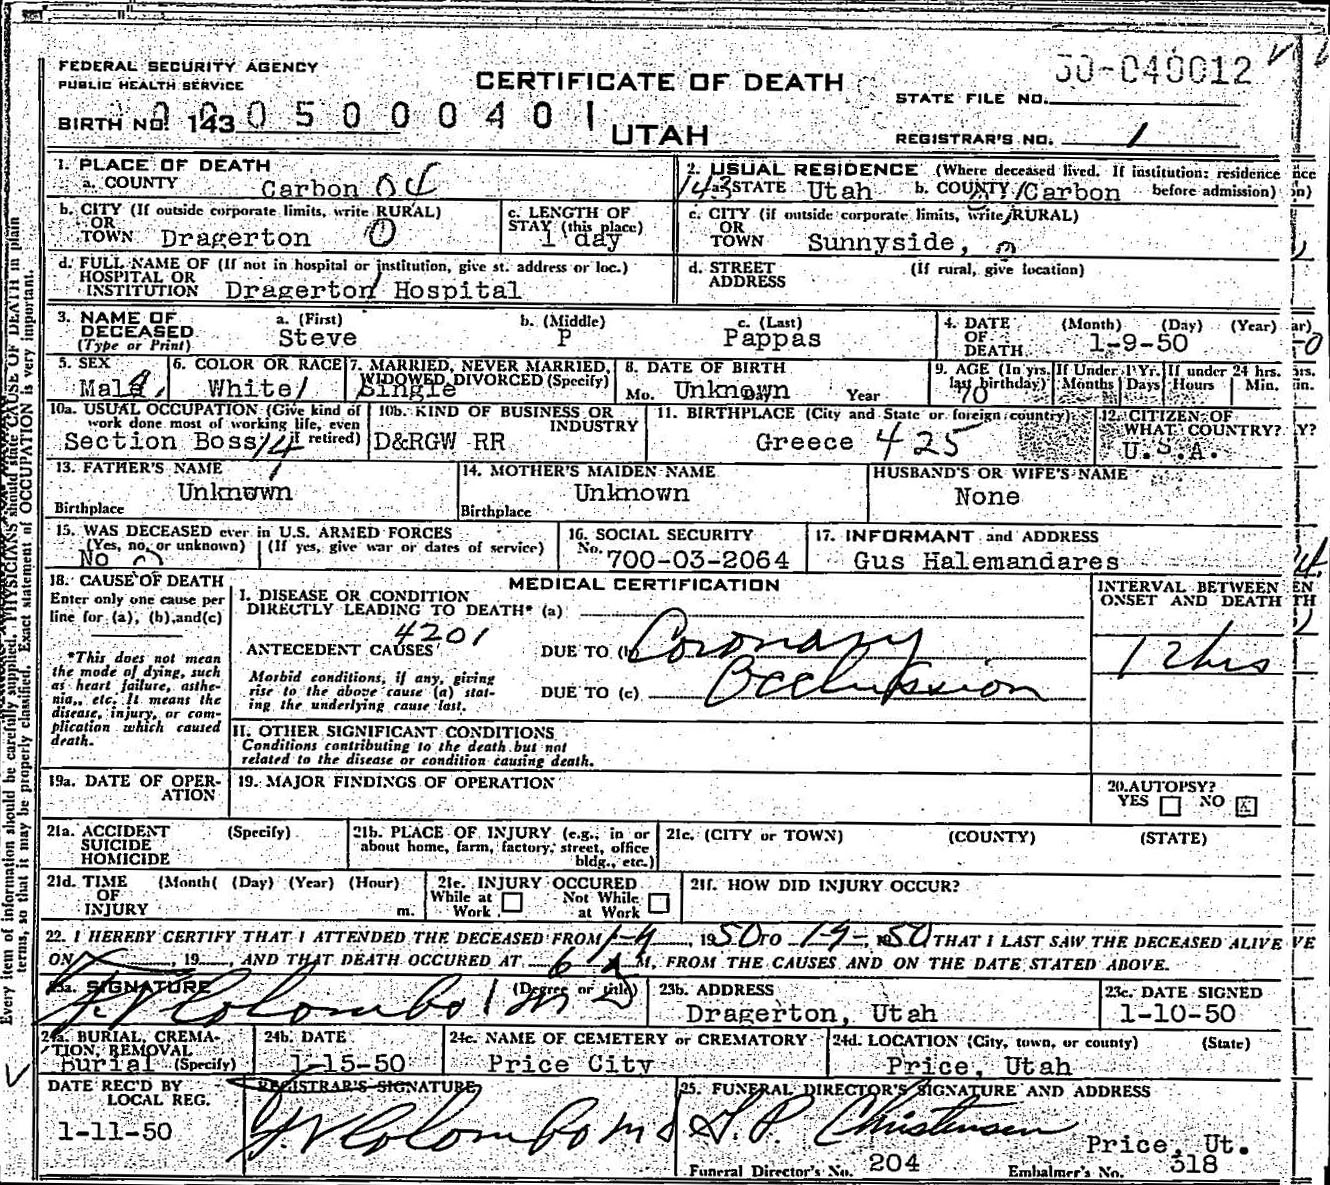 FEDERAL SECURITY AGENCY
PUBLIC HEALTH SERVICE
CERTIFICATE OF DEATH
UTAH
50-040012
STATE FILE NO.
BIRTH NO. 143 0 0 0 5 0 0 0 4 0 1
REGISTRAR'S NO. 1
1. PLACE OF DEATH
a. COUNTY Carbon 04
2. USUAL RESIDENCE (Where deceased lived. If institution: residence before admission)
143 a. STATE Utah b. COUNTY Carbon
b. CITY (If outside corporate limits, write RURAL)
OR
TOWN Dragerton 0
c. LENGTH OF
STAY (this place)
1 day
c. CITY (if outside corporate limits, write RURAL)
OR
TOWN Sunnyside,
d. FULL NAME OF (If not in hospital or institution, give st. address or loc.)
HOSPITAL OR
INSTITUTION Dragerton Hospital
d. STREET (If rural, give location)
ADDRESS
3. NAME OF DECEASED
(Type or Print)
a. (First) b. (Middle) c. (Last)
Steve P Pappas
4. DATE OF DEATH (Month) (Day) (Year)
1-9-50
5. SEX
Male
6. COLOR OR RACE
White
7. MARRIED, NEVER MARRIED,
WIDOWED, DIVORCED (Specify)
Single
8. DATE OF BIRTH
Mo. Unknown Day Year
9. AGE (In yrs. last birthday)
70
If Under 1 Yr.
Months Days
If under 24 hrs.
Hours Min.
10a. USUAL OCCUPATION (Give kind of
work done most of working life, even
if retired)
Section Boss 14
10b. KIND OF BUSINESS OR
INDUSTRY
D&RGW RR
11. BIRTHPLACE (City and State or foreign country)
Greece 425
12. CITIZEN OF
WHAT COUNTRY?
U.S.A.
13. FATHER'S NAME
Unknown
Birthplace
14. MOTHER'S MAIDEN NAME
Unknown
Birthplace
HUSBAND'S OR WIFE'S NAME
None
15. WAS DECEASED ever in U.S. ARMED FORCES
(Yes, no, or unknown) (If yes, give war or dates of service)
No
16. SOCIAL SECURITY
No. 700-03-2064
17. INFORMANT and ADDRESS
Gus Halemandares
18. CAUSE OF DEATH
Enter only one cause per
line for (a), (b), and (c)
*This does not mean
the mode of dying, such
as heart failure, asthe-
nia, etc. It means the
disease, injury, or com-
plication which caused
death.
MEDICAL CERTIFICATION
I. DISEASE OR CONDITION
DIRECTLY LEADING TO DEATH* (a)
4201
ANTECEDENT CAUSES DUE TO (b) Coronary
Morbid conditions, if any, giving
rise to the above cause (a) stat-
ing the underlying cause last.
DUE TO (c) Occlussion
INTERVAL BETWEEN
ONSET AND DEATH
12 hrs
II. OTHER SIGNIFICANT CONDITIONS
Conditions contributing to the death but not
related to the disease or condition causing death.
19a. DATE OF OPER-
ATION
19. MAJOR FINDINGS OF OPERATION
20. AUTOPSY?
YES NO X
21a. ACCIDENT (Specify)
SUICIDE
HOMICIDE
21b. PLACE OF INJURY (e.g., in or
about home, farm, factory, street, office
bldg., etc.)
21c. (CITY or TOWN) (COUNTY) (STATE)
21d. TIME (Month( (Day) (Year) (Hour)
OF
INJURY m.
21e. INJURY OCCURED
While at Work Not While at Work
21f. HOW DID INJURY OCCUR?
22. I HEREBY CERTIFY THAT I ATTENDED THE DECEASED FROM 1-9, 1950 TO 1-9-, 1950 THAT I LAST SAW THE DECEASED ALIVE
ON , 19 , AND THAT DEATH OCCURED AT 6 A M, FROM THE CAUSES AND ON THE DATE STATED ABOVE.
23a. SIGNATURE (Degree or title)
F V Colombo MD
23b. ADDRESS
Dragerton, Utah
23c. DATE SIGNED
1-10-50
24a. BURIAL, CREMA-
TION, REMOVAL
Burial (Specify)
24b. DATE
1-15-50
24c. NAME OF CEMETERY or CREMATORY
Price City
24d. LOCATION (City, town, or county) (State)
Price, Utah
DATE REC'D BY
LOCAL REG.
1-11-50
REGISTRAR'S SIGNATURE
F V Colombo md
25. FUNERAL DIRECTOR'S SIGNATURE AND ADDRESS
Christensen
Price, Ut.
Funeral Director's No. 204 Embalmer's No. 318
Every item of information should be carefully supplied. PHYSICIANS should state CAUSE OF DEATH in plain
terms, so that it may be properly classified. Exact statement of OCCUPATION is very important.